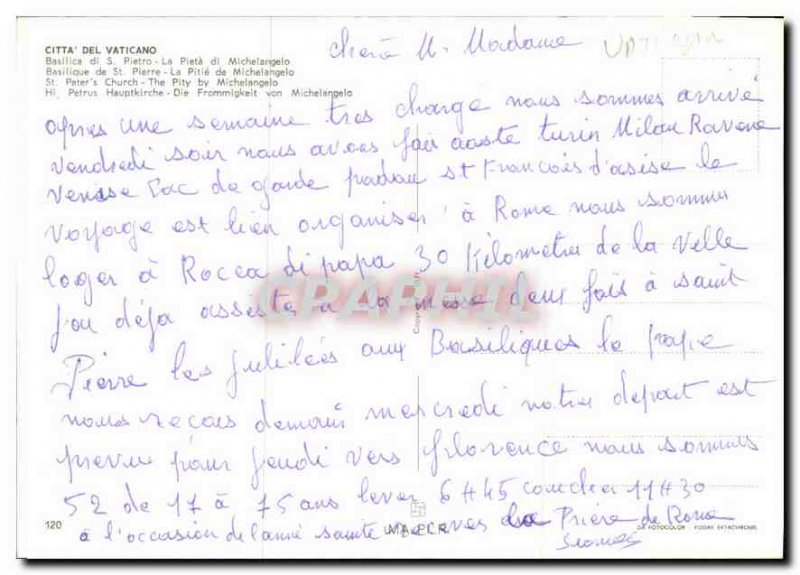 CITTA' DEL VATICANO
Basilica di S. Pietro - La Pietà di Michelangelo
Basilique de St. Pierre - La Pitié de Michelangelo
St. Peter's Church - The Pity by Michelangelo
Hl. Petrus Hauptkirche - Die Frommigkeit von Michelangelo
chère M. Madame
VATICAN
après une semaine tres chargé nous sommes arrivé
vendredi soir nous avons fai aoste turin Milan Ravene
venise Lac de garde padou st François d'asise le
voyage est bien organiser à Rome nous sommes
loger à Rocca di papa 30 Kilometre de la velle
j'ai déja assesté a la messe deux fois à saint
Pierre les jubilées aux Basiliques le pape
nous reçois demain mercredi notre depart est
prevu pour jeudi vers florence nous sommes
52 de 17 à 75 ans lever 6H45 coucher 11H30
à l'occasion de l'anné sainte Prière de Rome
120
CPAPHIL
FOTOCOLOR